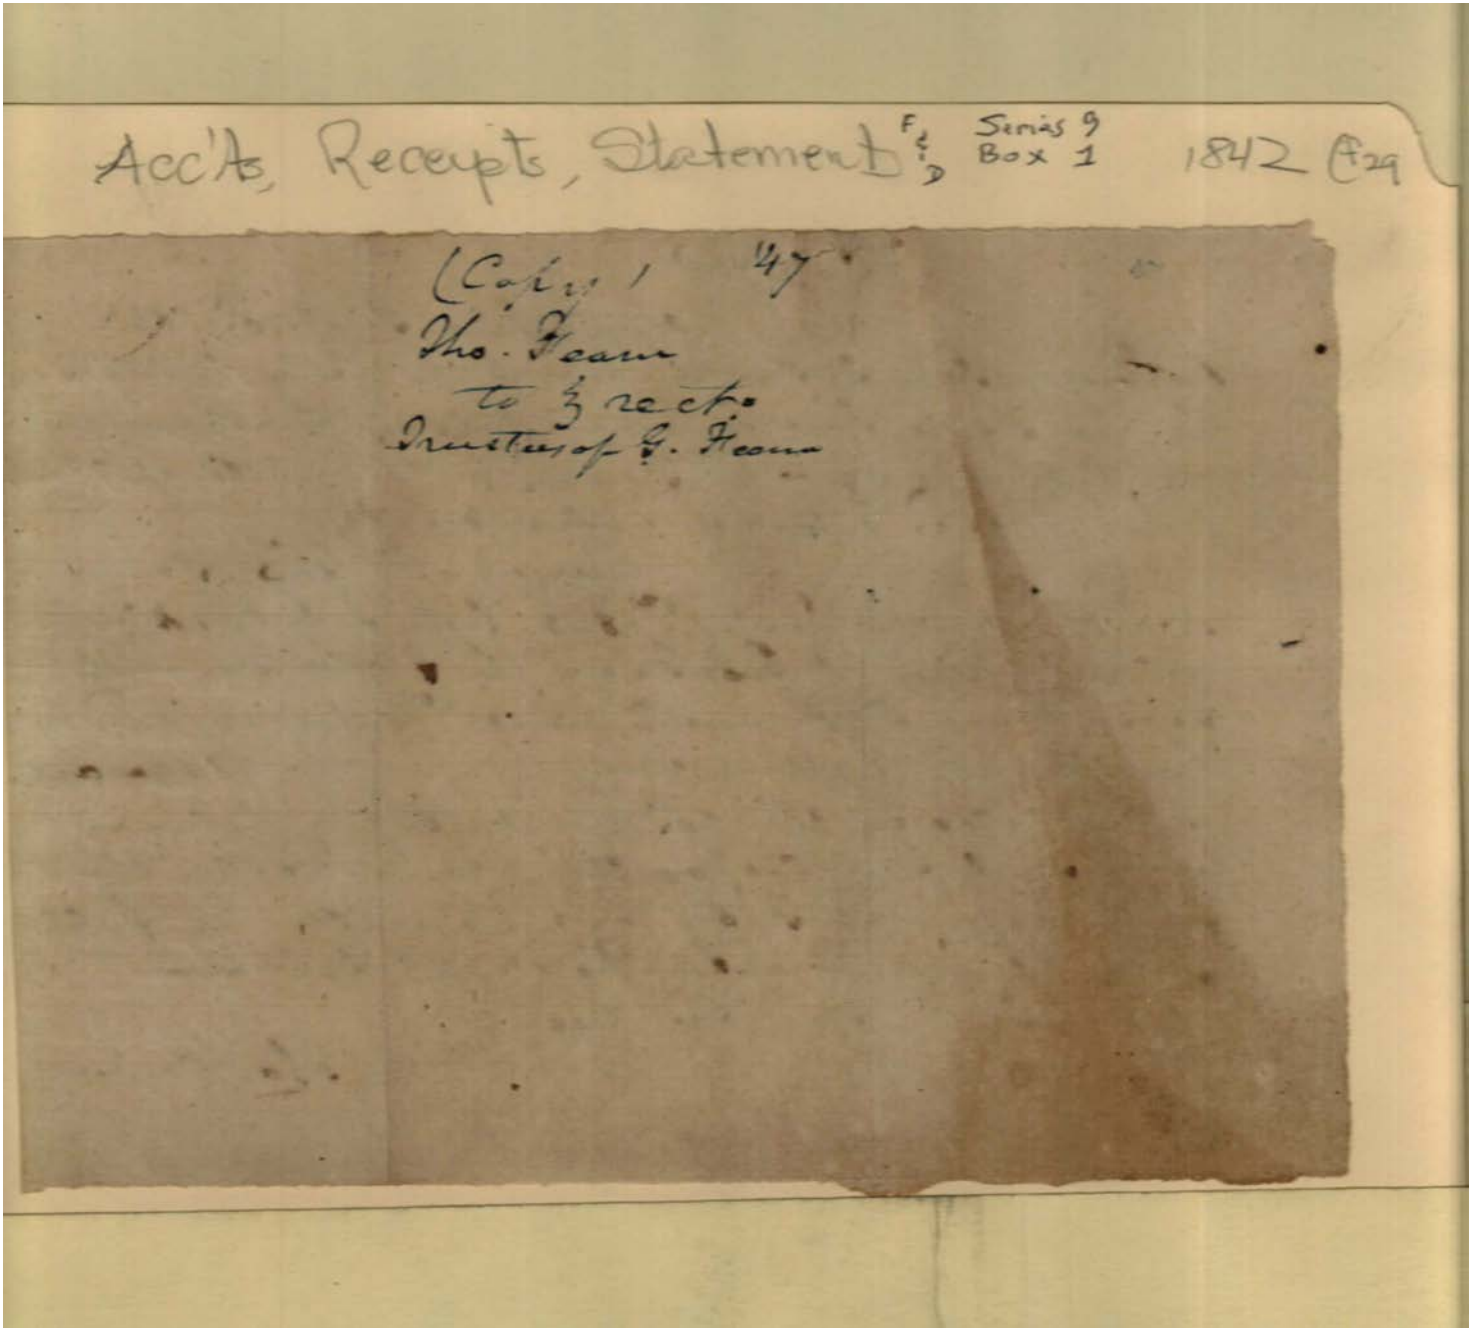 Acc'ts, Receipts, Statements F&D Series 9 Box 1 1842 F29
(Copy) '47
Tho. Fearn
to } rect.
Trustees of G. Fearn